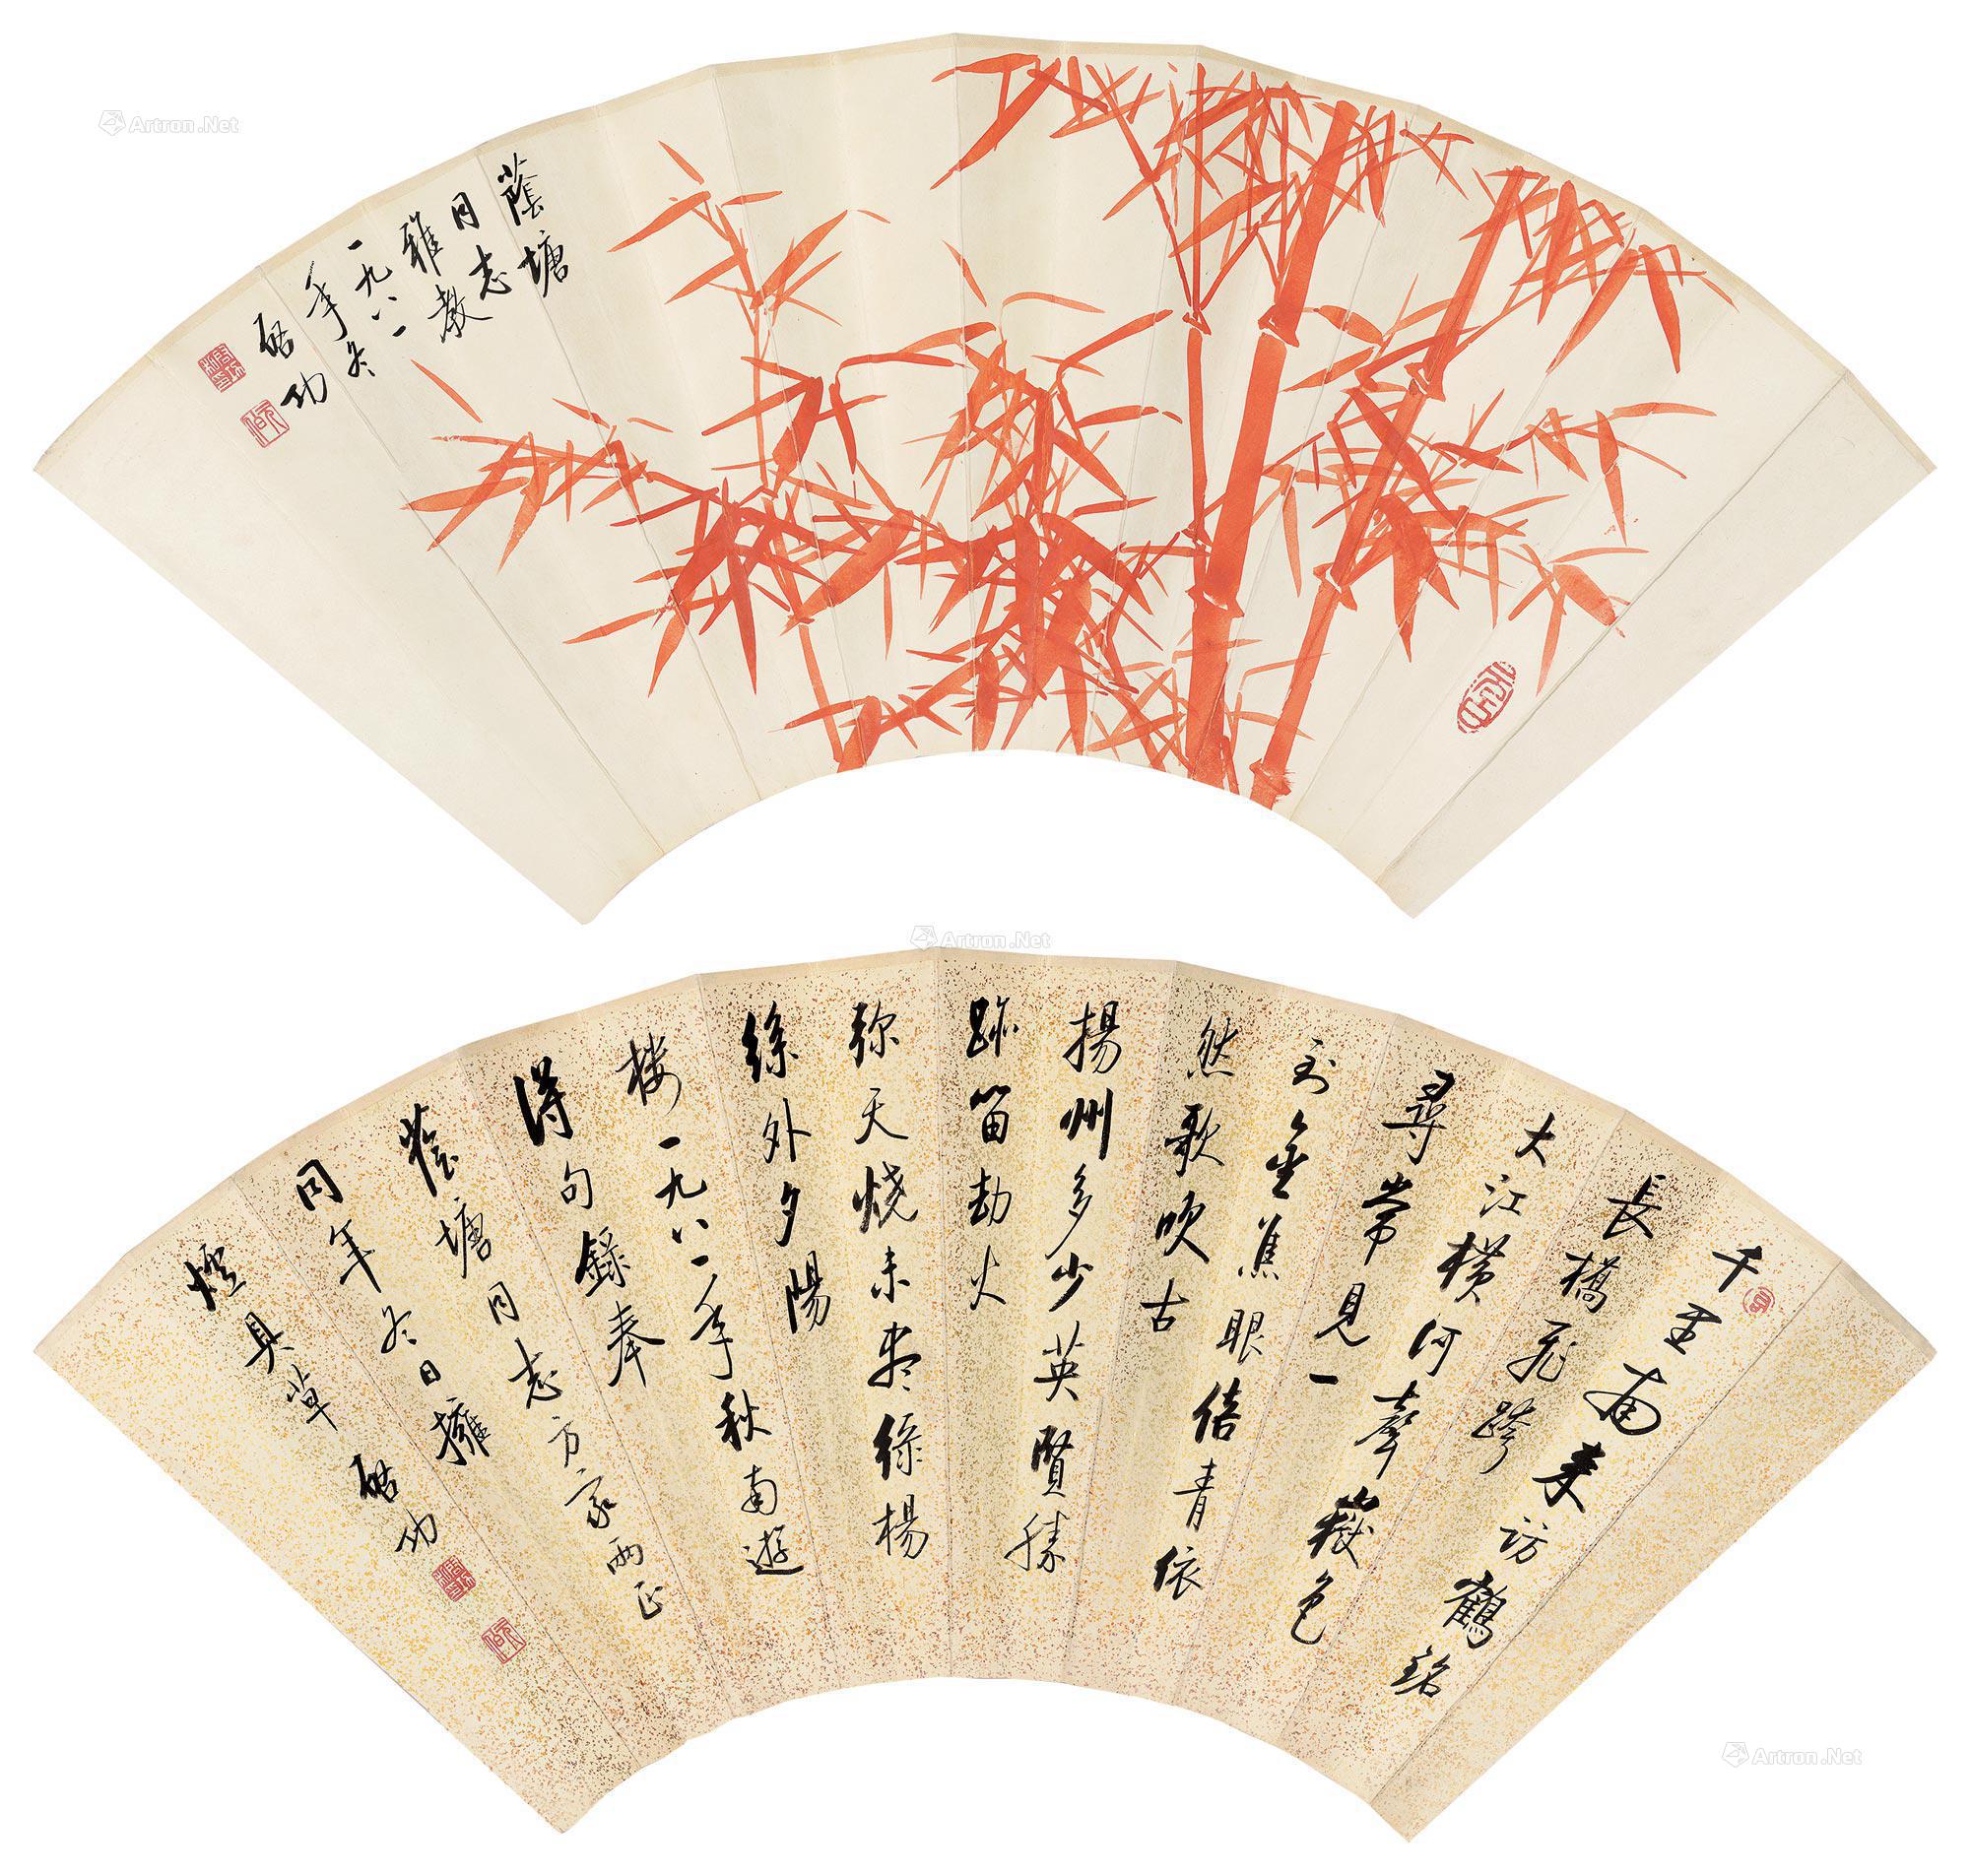 蔭塘
同志
雅教
一九八一
年冬
启功
千里南来访鶴銘
長橋飛跨
大江橫河聲嶽色
尋常見一
到金焦眼倍青依
然歌吹古
揚州多少英賢勝
跡留劫火
弥天烧未尽綠楊
絲外夕陽
楼一九八一年秋南遊
得句錄奉
蔭塘同志方家兩正
同年冬日擁
爐具草启功
Artron.Net
Artron.Net
Artron.Net